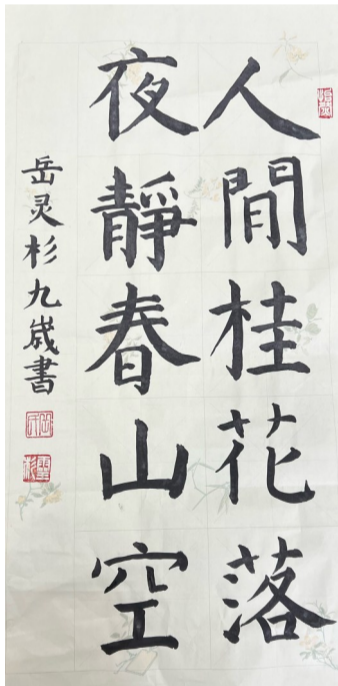 人間桂花落
夜靜春山空
岳灵杉九歲書